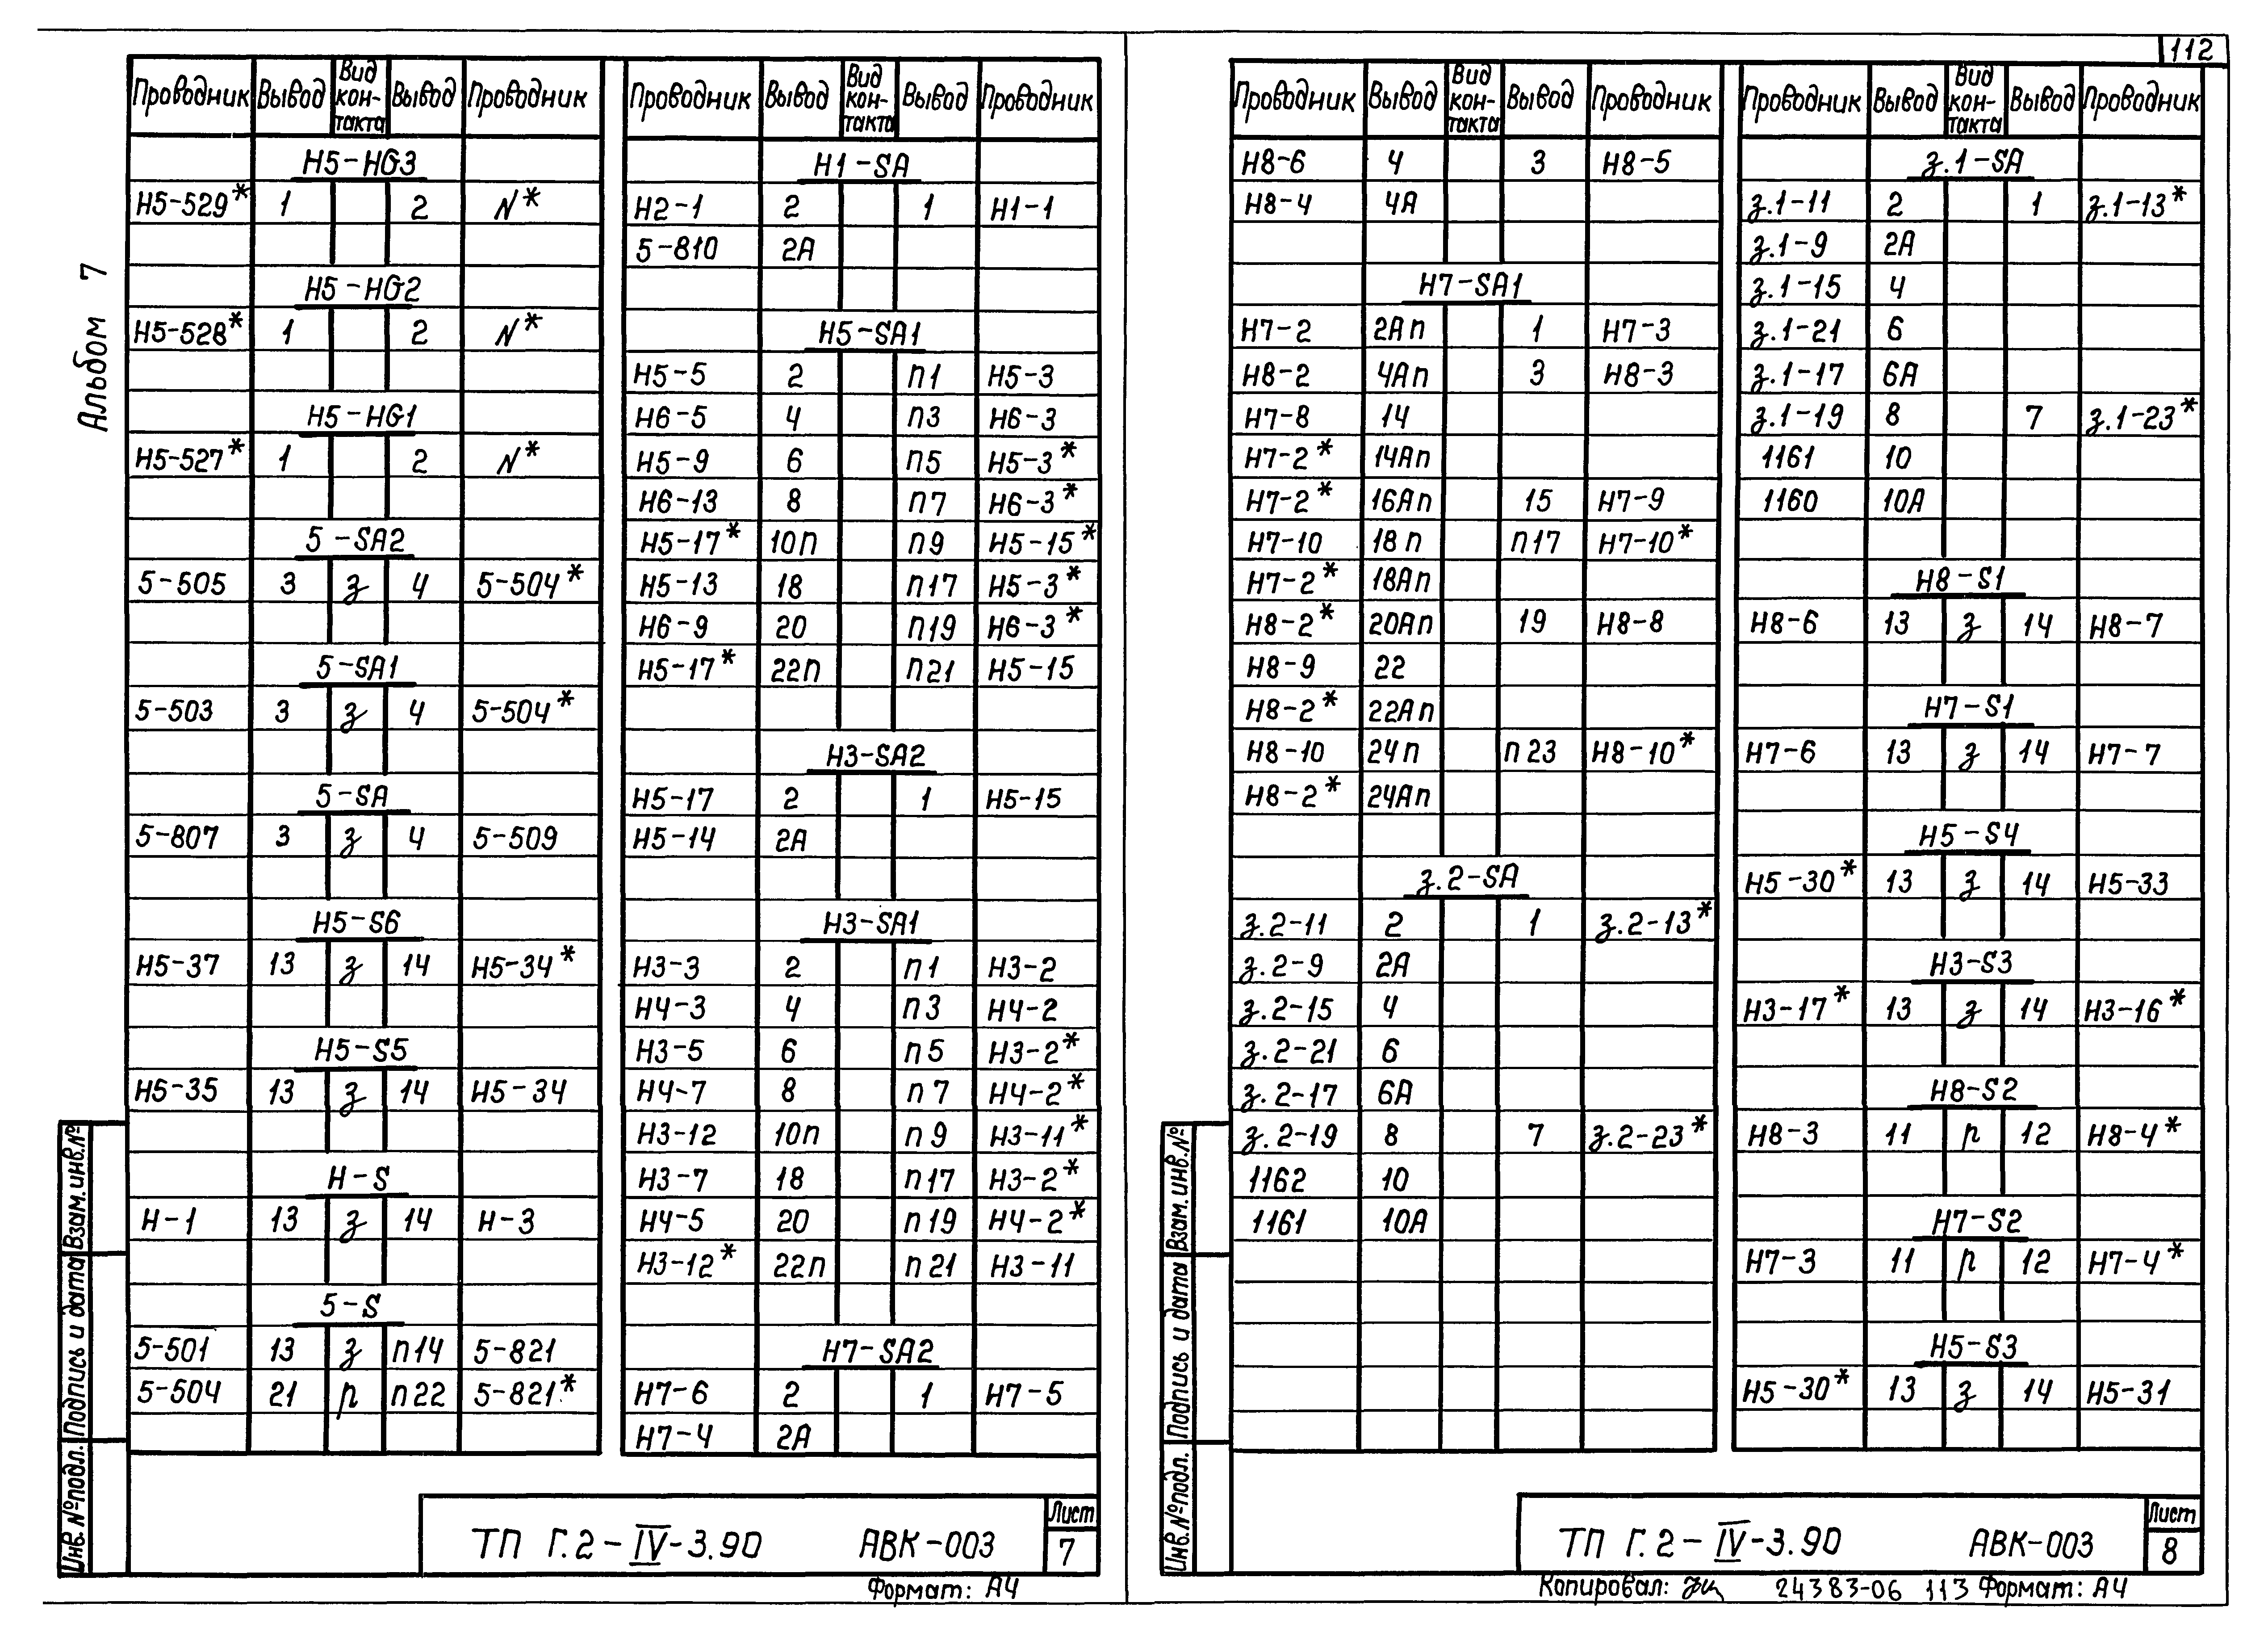 112
Альбом 7
Проводник Вывод Вид контакта Вывод Проводник
Н5-HG3
Н5-529* 1 2 N*
Н5-HG2
Н5-528* 1 2 N*
Н5-HG1
Н5-527* 1 2 N*
5-SA2
5-505 3 з 4 5-504*
5-SA1
5-503 3 з 4 5-504*
5-SA
5-807 3 з 4 5-509
Н5-S6
Н5-37 13 з 14 Н5-34*
Н5-S5
Н5-35 13 з 14 Н5-34
Н-S
Н-1 13 з 14 Н-3
5-S
5-501 13 з П14 5-821
5-504 21 р П22 5-821*
Проводник Вывод Вид контакта Вывод Проводник
Н1-SA
Н2-1 2 1 Н1-1
5-810 2А
Н5-SA1
Н5-5 2 П1 Н5-3
Н6-5 4 П3 Н6-3
Н5-9 6 П5 Н5-3*
Н6-13 8 П7 Н6-3*
Н5-17* 10П П9 Н5-15*
Н5-13 18 П17 Н5-3*
Н6-9 20 П19 Н6-3*
Н5-17* 22П П21 Н5-15
Н3-SA2
Н5-17 2 1 Н5-15
Н5-14 2А
Н3-SA1
Н3-3 2 П1 Н3-2
Н4-3 4 П3 Н4-2
Н3-5 6 П5 Н3-2*
Н4-7 8 П7 Н4-2*
Н3-12 10П П9 Н3-11*
Н3-7 18 П17 Н3-2*
Н4-5 20 П19 Н4-2*
Н3-12* 22П П21 Н3-11
Н7-SA2
Н7-6 2 1 Н7-5
Н7-4 2А
Взам. инв. №
Подпись и дата
Инв. № подл.
ТП Г.2-IV-3.90 АВК-003
Лист
7
Формат: А4
Проводник Вывод Вид контакта Вывод Проводник
Н8-6 4 3 Н8-5
Н8-4 4А
Н7-SA1
Н7-2 2Ап 1 Н7-3
Н8-2 4Ап 3 Н8-3
Н7-8 14
Н7-2* 14Ап
Н7-2* 16Ап 15 Н7-9
Н7-10 18п П17 Н7-10*
Н7-2* 18Ап
Н8-2* 20Ап 19 Н8-8
Н8-9 22
Н8-2* 22Ап
Н8-10 24п П23 Н8-10*
Н8-2* 24Ап
з.2-SA
з.2-11 2 1 з.2-13*
з.2-9 2А
з.2-15 4
з.2-21 6
з.2-17 6А
з.2-19 8 7 з.2-23*
1162 10
1161 10А
Проводник Вывод Вид контакта Вывод Проводник
з.1-SA
з.1-11 2 1 з.1-13*
з.1-9 2А
з.1-15 4
з.1-21 6
з.1-17 6А
з.1-19 8 7 з.1-23*
1161 10
1160 10А
Н8-S1
Н8-6 13 з 14 Н8-7
Н7-S1
Н7-6 13 з 14 Н7-7
Н5-S4
Н5-30* 13 з 14 Н5-33
Н3-S3
Н3-17* 13 з 14 Н3-16*
Н8-S2
Н8-3 11 р 12 Н8-4*
Н7-S2
Н7-3 11 р 12 Н7-4*
Н5-S3
Н5-30* 13 з 14 Н5-31
Взам. инв. №
Подпись и дата
Инв. № подл.
ТП Г.2-IV-3.90 АВК-003
Лист
8
Копировал: 24383-06 113 Формат: А4